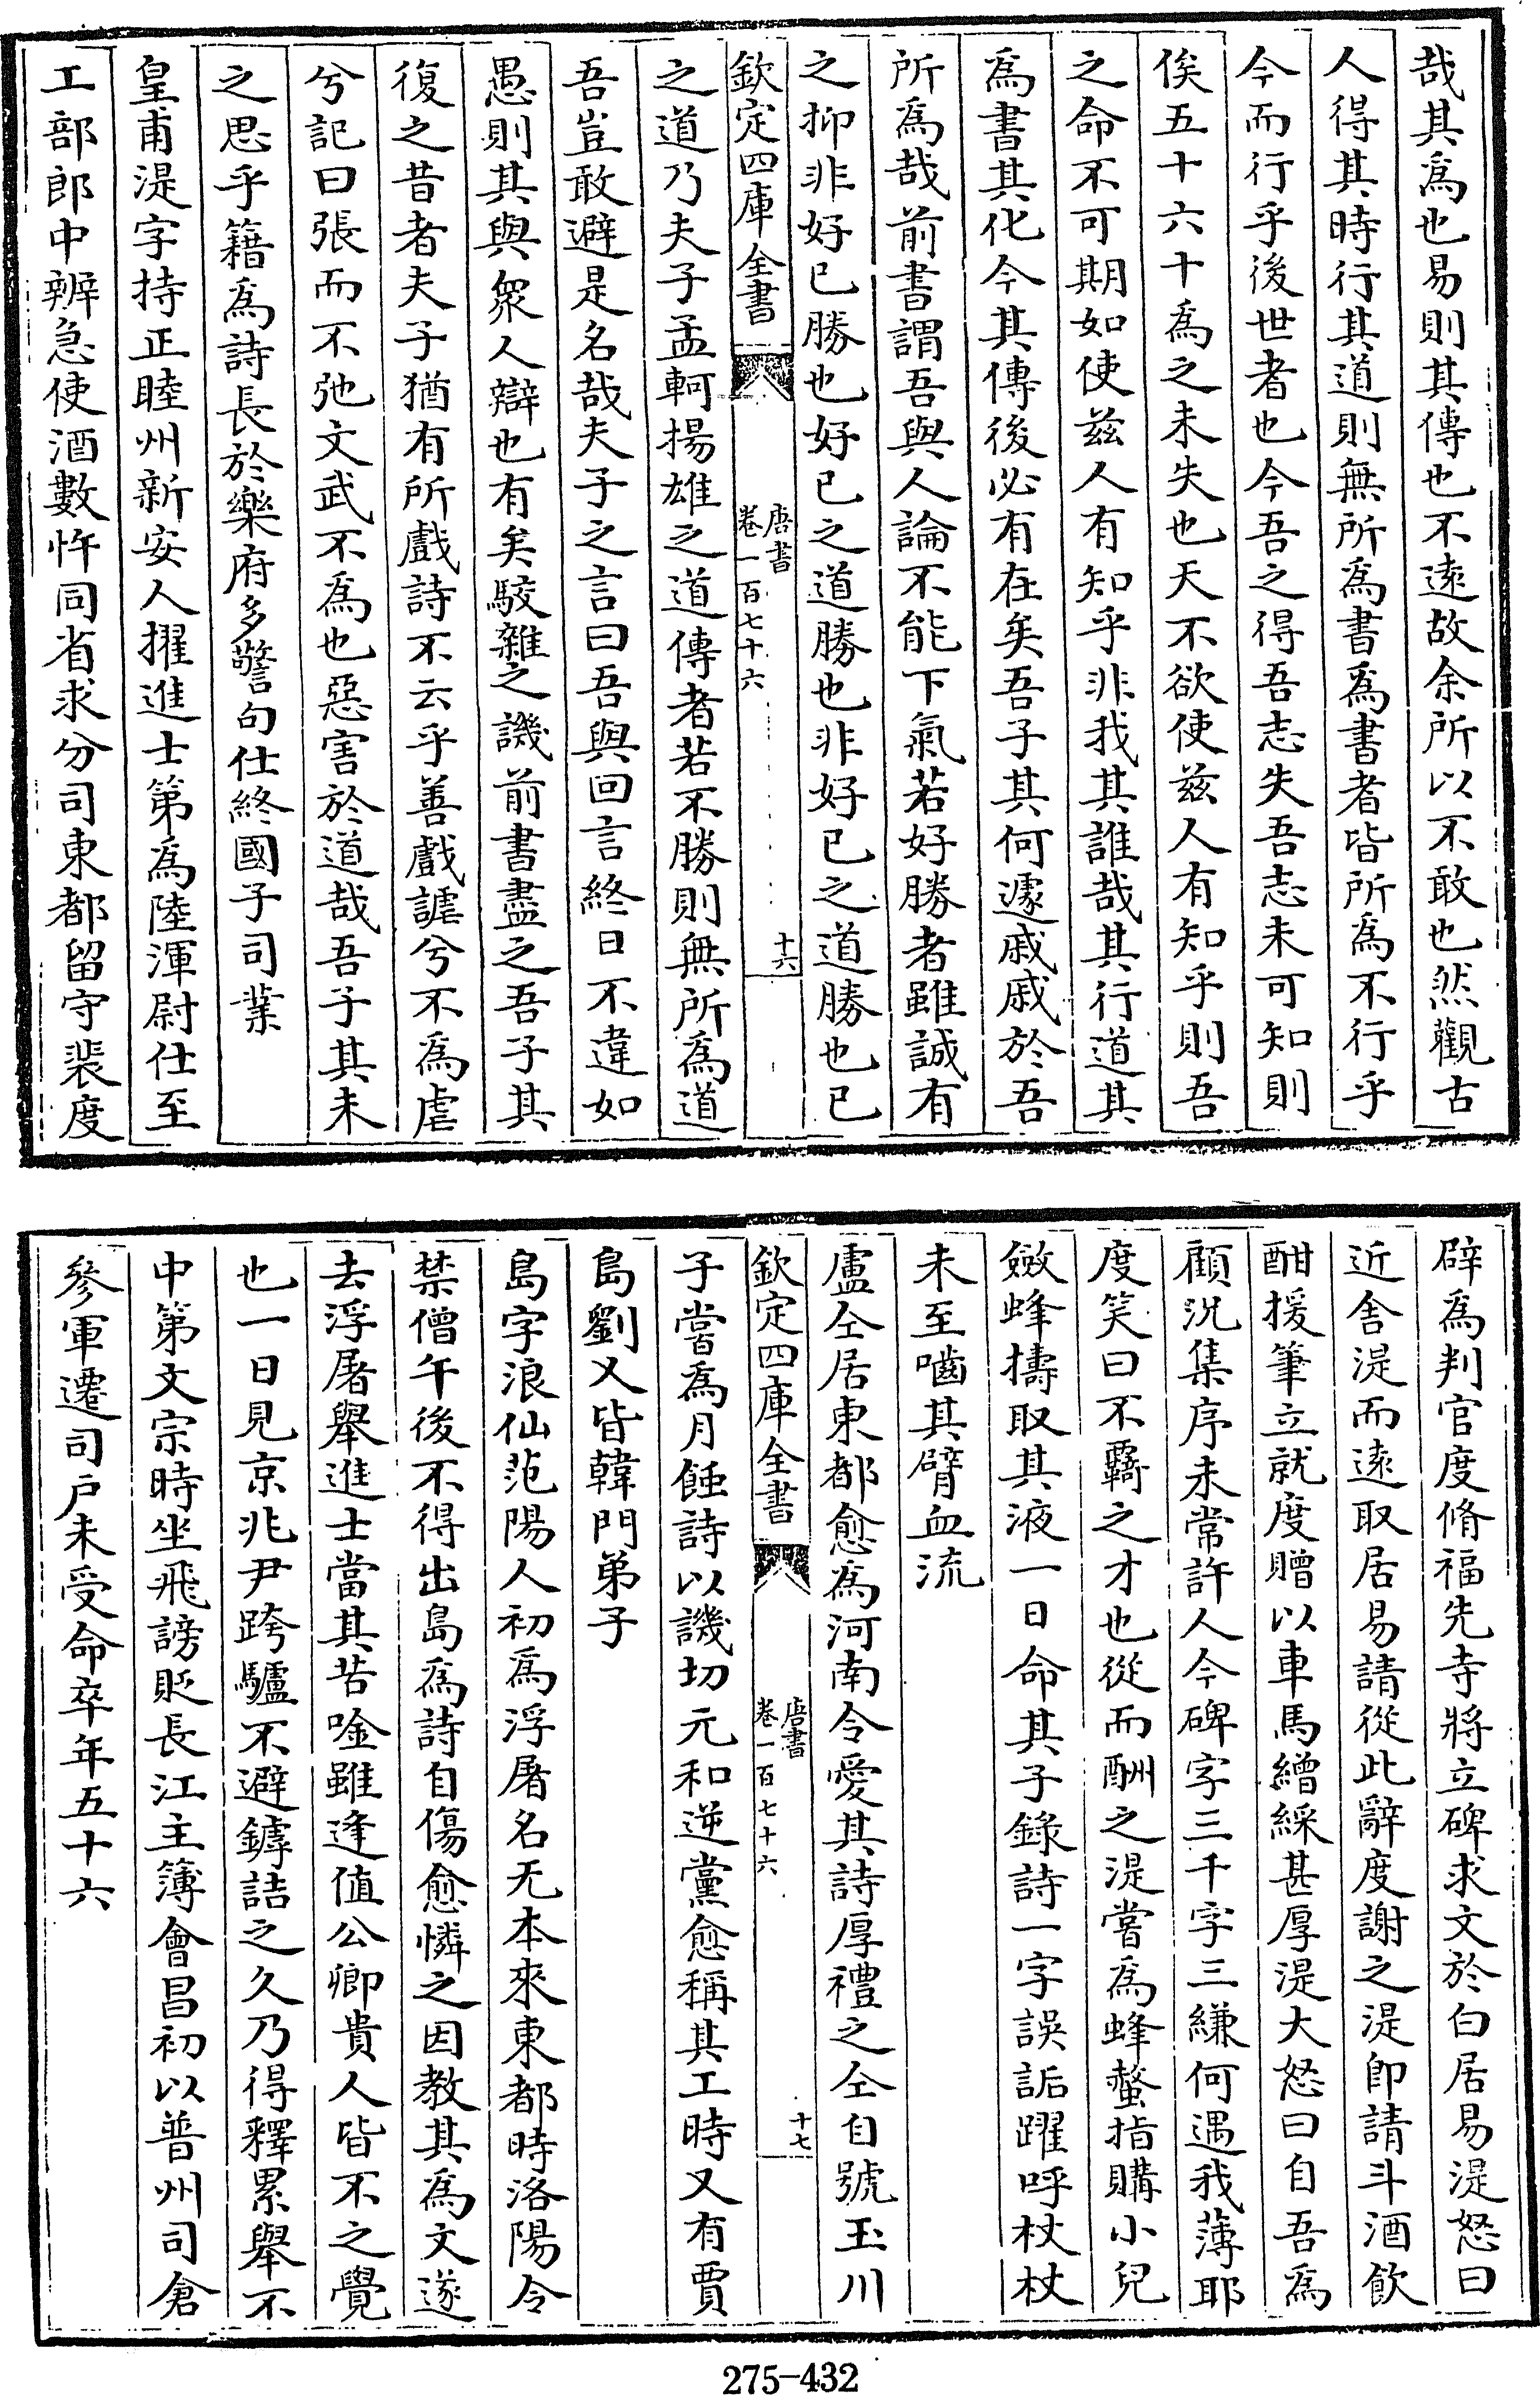 哉其為也易則其傳也不遠故余所以不敢也然觀古
人得其時行其道則無所為書為書者皆所為不行乎
今而行乎後世者也今吾之得吾志失吾志未可知則
俟五十六十為之未失也天不欲使兹人有知乎則吾
之命不可期如使兹人有知乎非我其誰哉其行道其
為書其化今其傳後必有在矣吾子其何遽戚戚於吾
所為哉前書謂吾與人論不能下氣若好勝者雖誠有
之抑非好已勝也好已之道勝也非好已之道勝也已
欽定四庫全書
唐書
卷一百七十六
十六
之道乃夫子孟軻揚雄之道傳者若不勝則無所為道
吾豈敢避是名哉夫子之言曰吾與回言終日不違如
愚則其與衆人辯也有矣駮雜之譏前書盡之吾子其
復之昔者夫子猶有所戲詩不云乎善戲謔兮不為虐
兮記曰張而不弛文武不為也惡害於道哉吾子其未
之思乎籍為詩長於樂府多警句仕終國子司業
皇甫湜字持正睦州新安人擢進士第為陸渾尉仕至
工部郎中辨急使酒數忤同省求分司東都留守裴度
辟為判官度脩福先寺將立碑求文於白居易湜怒曰
近舍湜而遠取居易請從此辭度謝之湜即請斗酒飲
酣援筆立就度贈以車馬繒綵甚厚湜大怒曰自吾為
顧況集序未常許人今碑字三千字三縑何遇我薄耶
度笑曰不羈之才也從而酬之湜嘗為蜂螫指購小兒
斂蜂擣取其液一日命其子錄詩一字誤詬躍呼杖杖
未至嚙其臂血流
盧仝居東都愈為河南令愛其詩厚禮之仝自號玉川
欽定四庫全書
唐書
卷一百七十六
十七
子嘗為月蝕詩以譏切元和逆黨愈稱其工時又有賈
島劉乂皆韓門弟子
島字浪仙范陽人初為浮屠名无本來東都時洛陽令
禁僧午後不得出島為詩自傷愈憐之因教其為文遂
去浮屠舉進士當其苦唫雖逢值公卿貴人皆不之覺
也一日見京兆尹跨驢不避䥧詰之久乃得釋累舉不
中第文宗時坐飛謗貶長江主簿會昌初以普州司倉
參軍遷司户未受命卒年五十六
275-432